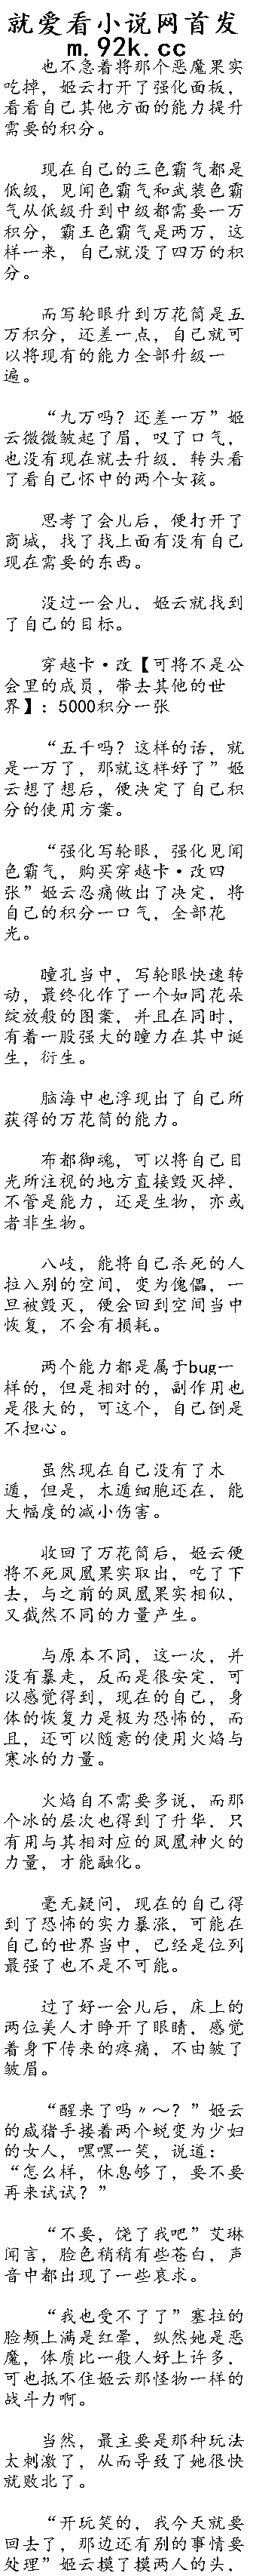 就爱看小说网首发
m.92k.cc
也不急着将那个恶魔果实
吃掉，姬云打开了强化面板，
看看自己其他方面的能力提升
需要的积分。
现在自己的三色霸气都是
低级，见闻色霸气和武装色霸
气从低级升到中级都需要一万
积分，霸王色霸气是两万，这
样一来，自己就没了四万的积
分。
而写轮眼升到万花筒是五
万积分，还差一点，自己就可
以将现有的能力全部升级一
遍。
“九万吗？还差一万”姬
云微微皱起了眉，叹了口气，
也没有现在就去升级，转头看
了看自己怀中的两个女孩。
思考了会儿后，便打开了
商城，找了找上面有没有自己
现在需要的东西。
没过一会儿，姬云就找到
了自己的目标。
穿越卡·改【可将不是公
会里的成员，带去其他的世
界】：5000积分一张
“五千吗？这样的话，就
是一万了，那就这样好了”姬
云想了想后，便决定了自己积
分的使用方案。
“强化写轮眼，强化见闻
色霸气，购买穿越卡·改四
张”姬云忍痛做出了决定，将
自己的积分一口气，全部花
光。
瞳孔当中，写轮眼快速转
动，最终化作了一个如同花朵
绽放般的图案，并且在同时，
有着一股强大的瞳力在其中诞
生，衍生。
脑海中也浮现出了自己所
获得的万花筒的能力。
布都御魂，可以将自己目
光所注视的地方直接毁灭掉，
不管是能力，还是生物，亦或
者非生物。
八岐，能将自己杀死的人
拉入别的空间，变为傀儡，一
旦被毁灭，便会回到空间当中
恢复，不会有损耗。
两个能力都是属于bug一
样的，但是相对的，副作用也
是很大的，可这个，自己倒是
不担心。
虽然现在自己没有了木
遁，但是，木遁细胞还在，能
大幅度的减小伤害。
收回了万花筒后，姬云便
将不死凤凰果实取出，吃了下
去，与之前的凤凰果实相似，
又截然不同的力量产生。
与原本不同，这一次，并
没有暴走，反而是很安定，可
以感觉得到，现在的自己，身
体的恢复力是极为恐怖的，而
且，还可以随意的使用火焰与
寒冰的力量。
火焰自不需要多说，而那
个冰的层次也得到了升华，只
有用与其相对应的凤凰神火的
力量，才能融化。
毫无疑问，现在的自己得
到了恐怖的实力暴涨，可能在
自己的世界当中，已经是位列
最强了也不是不可能。
过了好一会儿后，床上的
两位美人才睁开了眼睛，感觉
着身下传来的疼痛，不由皱了
皱眉。
“醒来了吗〃～？”姬云
的咸猪手搂着两个蜕变为少妇
的女人，嘿嘿一笑，说道：
“怎么样，休息够了，要不要
再来试试？”
“不要，饶了我吧”艾琳
闻言，脸色稍稍有些苍白，声
音中都出现了一些哀求。
“我也受不了了”塞拉的
脸颊上满是红晕，纵然她是恶
魔，体质比一般人好上许多，
可也抵不住姬云那怪物一样的
战斗力啊。
当然，最主要是那种玩法
太刺激了，从而导致了她很快
就败北了。
“开玩笑的，我今天就要
回去了，那边还有别的事情要
处理”姬云摸了摸两人的头，